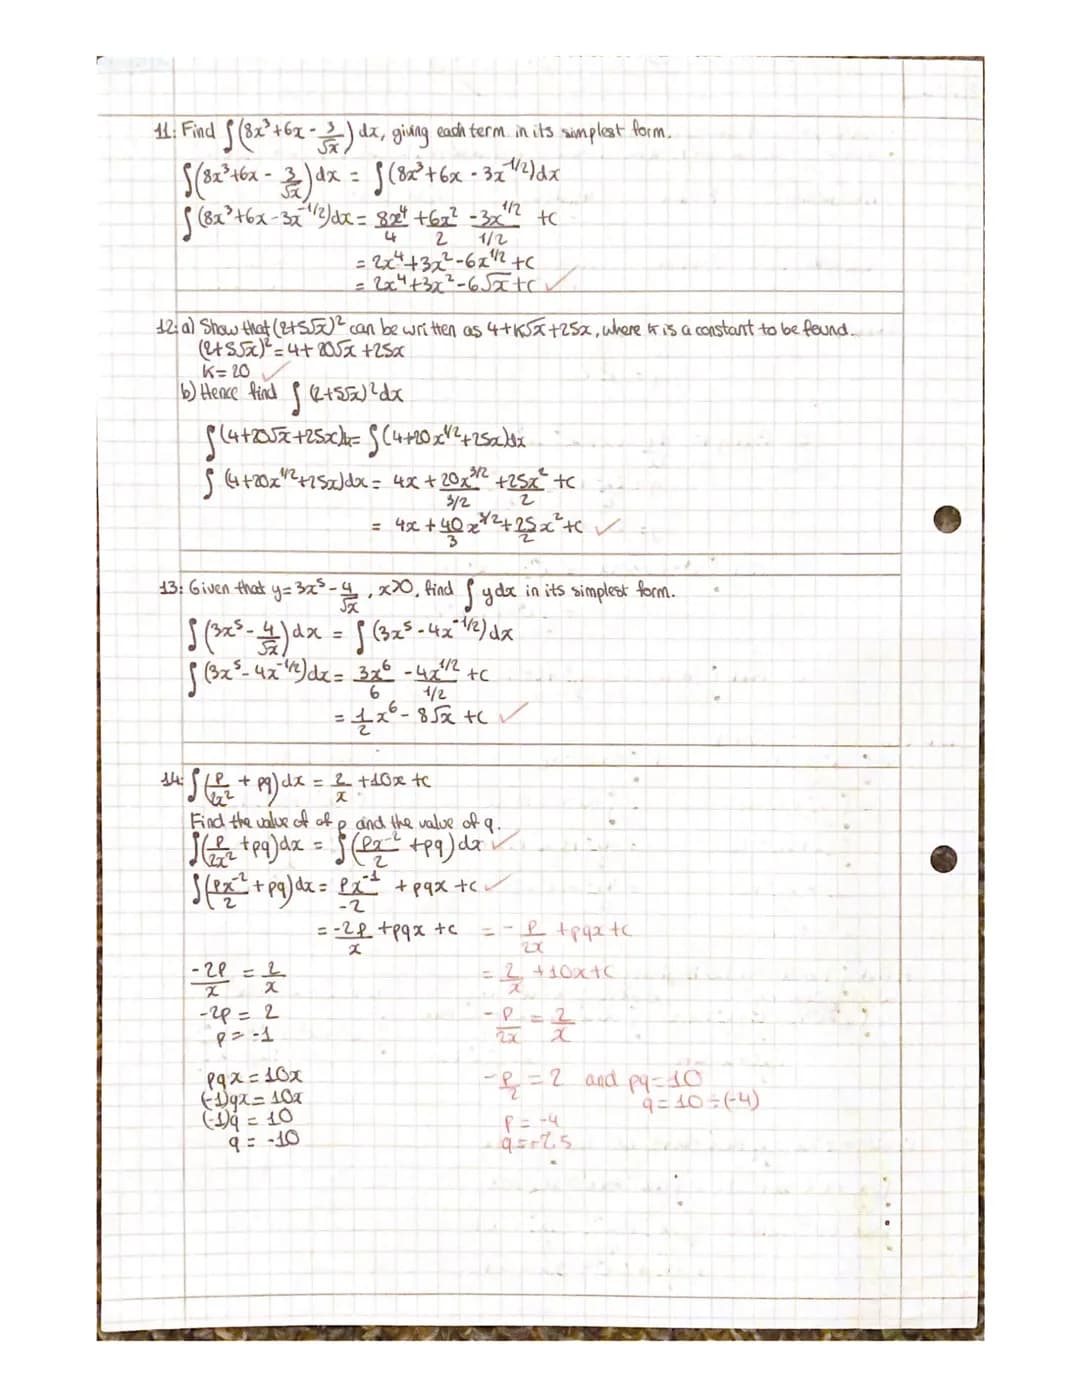 11: Find ∫(8x³+6x - 3/√x) dx, giving each term in its simplest form.
∫(8x³+6x - 3/√x)dx = ∫(8x³+6x - 3x^-1/2)dx
∫(8x³+6x-3x^-1/2)dx = 8x⁴/4 + 6x²/2 - 3x^1/2/1/2 + c
= 2x⁴+3x²-6x^1/2 + c
= 2x⁴+3x²-6√x+c ✓
12: a) Show that (2+5√x)² can be written as 4+k√x+25x, where k is a constant to be found.
(2+5√x)² = 4+20√x+25x
k=20 ✓
b) Hence find ∫(2+5√x)²dx
∫(4+20√x+25x)dx = ∫(4+20x^1/2+25x)dx
∫(4+20x^1/2+25x)dx = 4x + 20x^3/2/3/2 + 25x²/2 + c
= 4x + 40/3 x^3/2 + 25/2 x² + c ✓
13: Given that y=3x⁵ - 4/√x, x>0, find ∫ydx in its simplest form.
∫(3x⁵ - 4/√x)dx = ∫(3x⁵ - 4x^-1/2)dx
∫(3x⁵-4x^-1/2)dx = 3x⁶/6 - 4x^1/2/1/2 + c
= 1/2 x⁶ - 8√x + c ✓
14: ∫(p/2x² + pq)dx = 2/x + 10x + c
Find the value of of p and the value of q.
∫(p/2x² + pq)dx = ∫(px^-2/2 + pq)dx ✓
∫(px^-2/2 + pq)dx = px^-1/-2 + pqx + c ✓
= -2p/x + pqx + c = -p/2x + pqx + c
-2p/x = 2/x = 2/x + 10x + c
-2p = 2 -p/2x = 2/x
p = -1
pqx = 10x -p/2 = 2 and pq = 10
(-1)qx = 10x q = 10÷(-4)
(-1)q = 10 p = -4
q = -10 q = -2.5